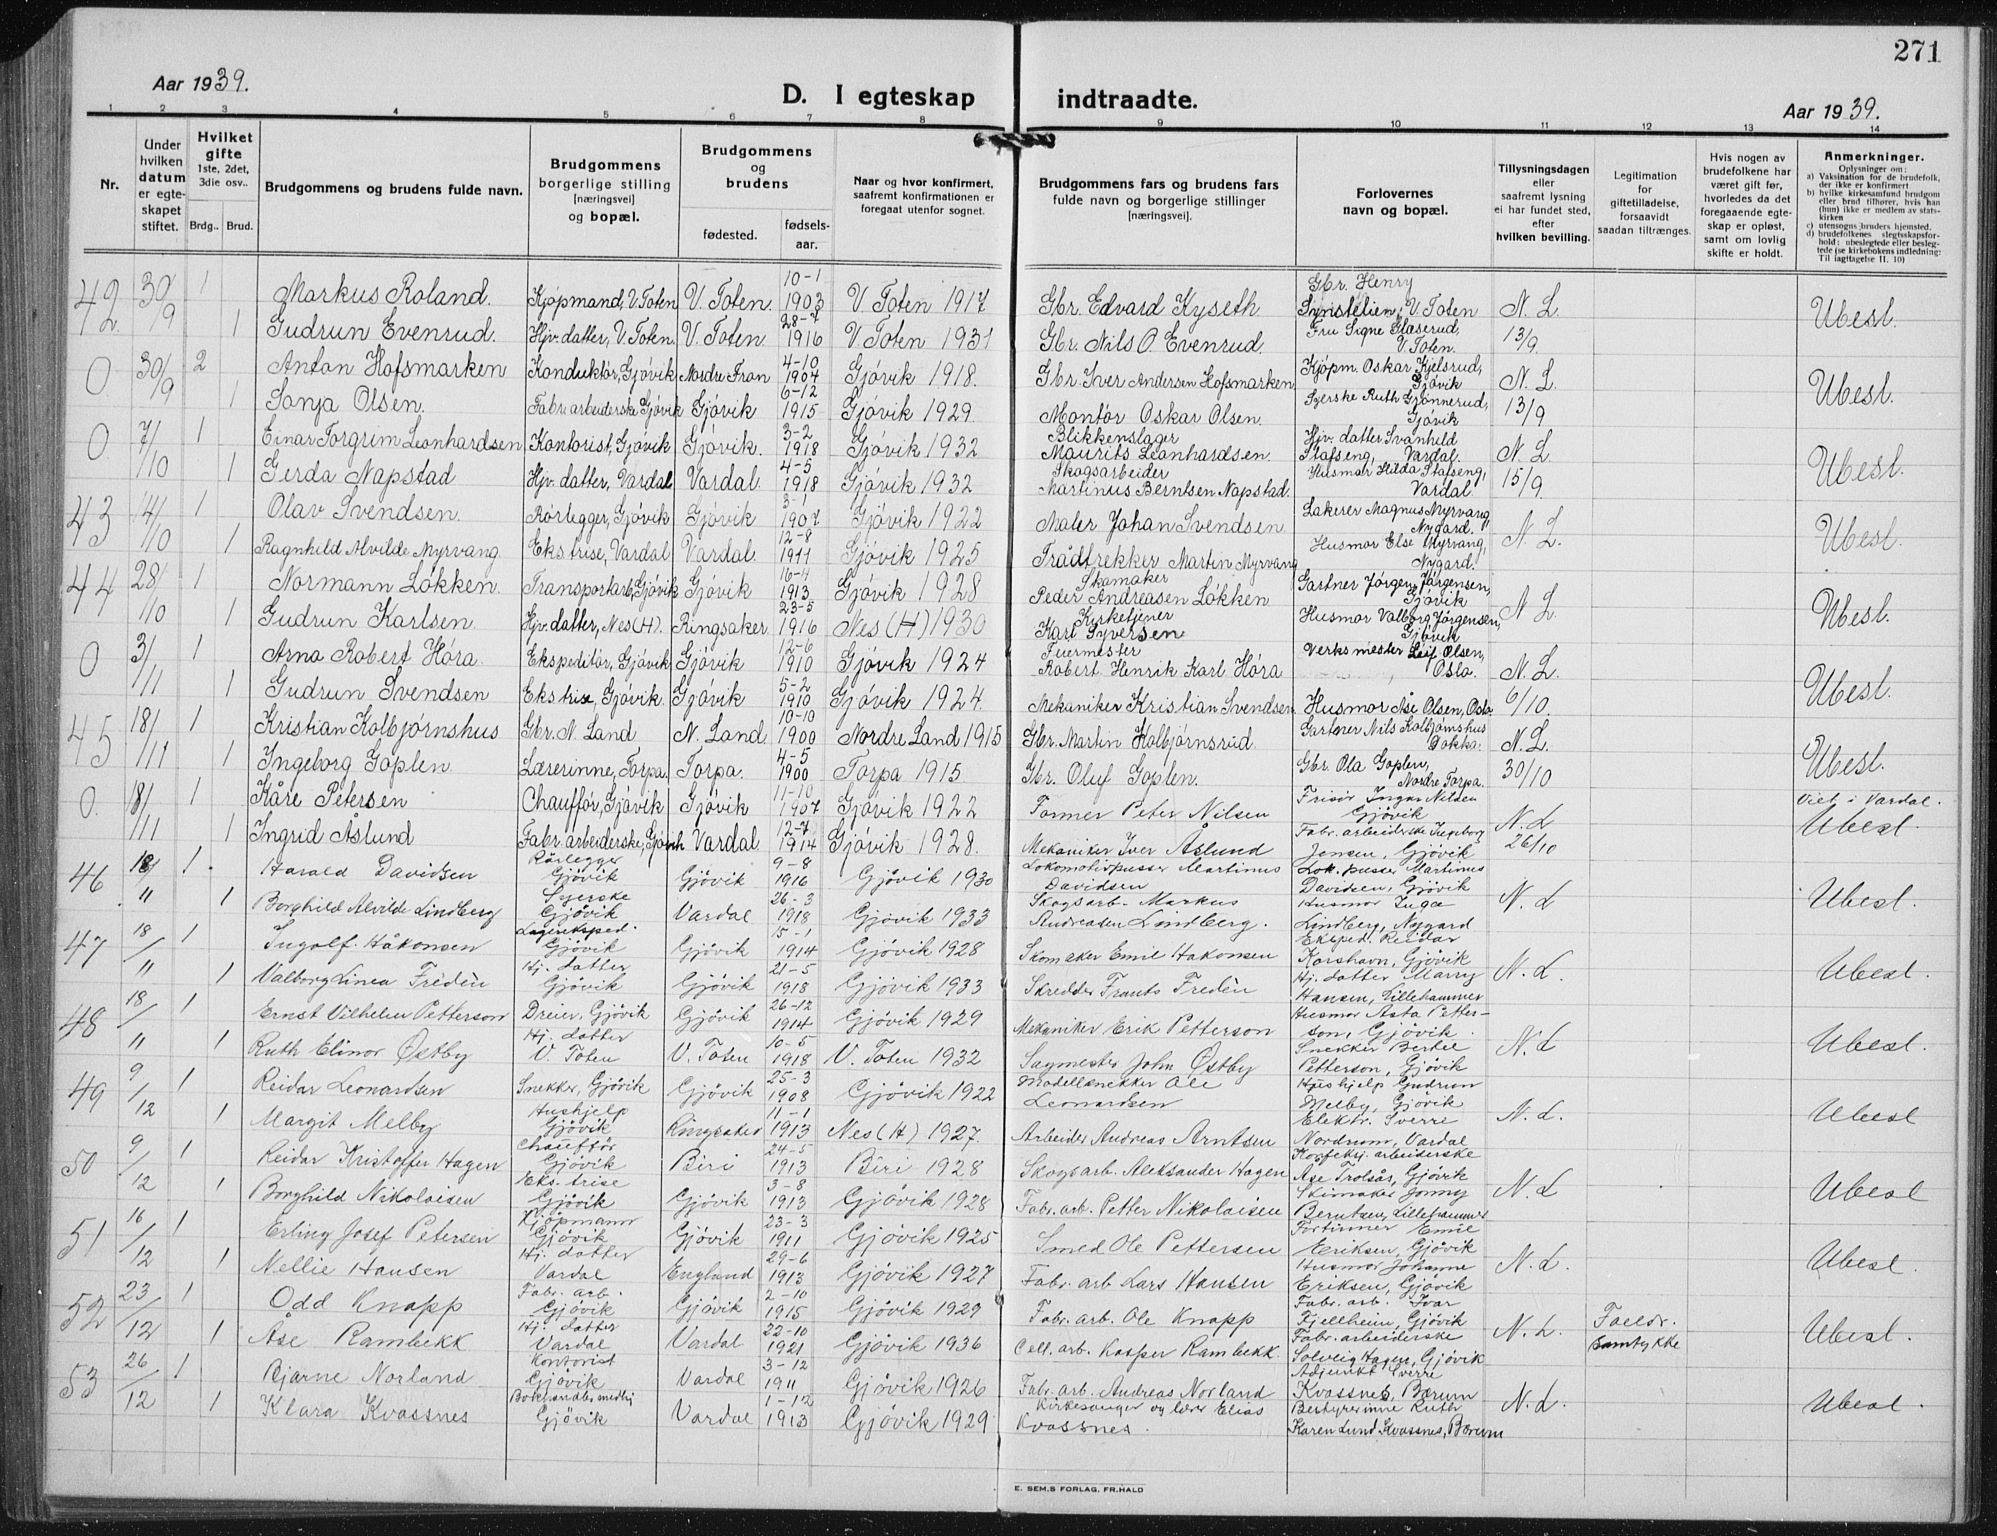 271
Aar 1939.
D. I egteskap indtraadte.
Aar 1939.
1 2 3 4 5 6 7 8 9 10 11 12 13 14
Nr.
Under hvilken datum er egteskapet stiftet.
Hvilket gifte 1ste, 2det, 3die osv..
Brdg.. Brud.
Brudgommens og brudens fulde navn.
Brudgommens borgerlige stilling [næringsvei] og bopæl.
Brudgommens og brudens
fødested. fødselsaar.
Naar og hvor konfirmert, saafremt konfirmationen er foregaat utenfor sognet.
Brudgommens fars og brudens fars fulde navn og borgerlige stillinger [næringsvei].
Forlovernes navn og bopæl.
Tillysningsdagen eller saafremt lysning ei har fundet sted, efter hvilken bevilling.
Legitimation for giftetilladelse, forsaavidt saadan tiltrænges.
Hvis nogen av brudefolkene har været gift før, hvorledes da det foregaaende egteskap er opløst, samt om lovlig skifte er holdt.
Anmerkninger.
Oplysninger om:
a) Vaksination for de brudefolk, der ikke er konfirmert
b) hvilke kirkesamfund brudgom eller brud tilhører, hvis han (hun) ikke er medlem av statskirken
c) utensogns bruders hjemsted.
d) brudefolkenes slegtsskapsforhold: ubeslegtede eller beslegtede (se kirkebokens indledning: Til iagttagelse II. 10)
42 30/9 1 Markus Roland. Kjøpmand, V. Toten V. Toten. 10-1 1903 V. Toten 1917 Gbr. Edvard Kyseth Gbr. Henry Synstelien, V. Toten N. L. Ubesl.
1 Gudrun Evenrud. Hjv. datter, V. Toten. V. Toten. 28-7 1916 V. Toten 1931 Gbr. Nils O. Evenrud. Fru Signe Glæserud, V. Toten. 13/9
0 30/9 2 Anton Hofsmarken Konduktör, Gjövik Nordre Fron 4-10 1904 Gjövik 1918. Gbr. Iver Andersen Hofsmarken Kjöpm. Oskar Kjelsrud, Gjövik N. L. Ubesl.
1 Sonja Olsen. Fabr. arbeiderske Gjövik Gjövik 6-12 1915 Gjövik 1929. Montör Oskar Olsen. Syerske Ruth Grönnerud, Gjövik 13/9
0 7/10 1 Einar Torgrim Leonhardsen Kontorist, Gjövik Gjövik. 3-2 1918 Gjövik 1932 Blikkenslager Maurits Leonhardsen. Hjv. datter Svanhild Stafseng, Vardal. N. L. Ubesl.
1 Gerda Napstad Hjv. datter, Vardal Vardal. 4-5 1918 Gjövik 1932 Skogsarbeider Martinus Berntsen Napstad. Husmor Hilda Stafseng, Vardal 15/9.
43 14/10 1 Olav Svendsen. Rörlegger, Gjövik Gjövik 3-1 1907 Gjövik 1922 Maler Johan Svendsen Lakerer Magnus Myrvang, Nygard. N. L. Ubesl.
1 Ragnhild Alvilde Myrvang Ekstrise, Vardal Vardal. 12-8 1911 Gjövik 1925 Trådtrekker Martin Myrvang Husmor Else Myrvang, Nygard.
44 28/10 1 Normann Lökken. Transportarb, Gjövik Gjövik 16-4 1913 Gjövik 1928 Skomaker Peder Andreasen Lökken Gartner Jörgen Jörgensen, Gjövik N. L. Ubesl.
1 Gudrun Karlsen. Hjv. datter, Nes (H). Ringsaker 23-5 1916 Nes (H) 1930 Kirketjener Karl Syversen Husmor Valborg Jörgensen, Gjövik
0 3/11 1 Arno Robert Hóra. Ekspeditör, Gjövik Gjövik 12-6 1910 Gjövik 1924 Fuermester Robert Henrik Karl Hóra Verksmester Leif Olsen, Oslo. N. L. Ubesl.
1 Gudrun Svendsen Ekstrise, Gjövik. Gjövik 5-2 1910 Gjövik 1924. Mekaniker Kristian Svendsen Husmor Åse Olsen, Oslo. 6/10.
45 18/11 1 Kristian Kolbjørnshus Gbr. N. Land N. Land. 10-10 1900 Nordre Land 1915 Gbr. Martin Kolbjörnsrud. Gartner Nils Kolbjørnshus Dokka. N. L. Ubesl.
1 Ingeborg Goplen. Lærerinne, Torpa. Torpa. 4-5 1900 Torpa 1915. Gbr. Oluf Goplen. Gbr. Ola Goplen, Nordre Torpa. 30/10
0. 18/11 1 Kåre Petersen Chauffør, Gjövik Gjövik 11-10 1907 Gjövik 1922 Former Peter Nilsen Frisör Ingar Nilsen Gjövik N. L Viet i Vardal. Ubesl.
1 Ingrid Åslund Fabr. arbeiderske, Gjövik Vardal 12-7 1914 Gjövik 1928. Mekaniker Iver Åslund Fabr. arbeiderske Ingeborg Jensen, Gjövik 26/10
46 18/11 1 Harald Davidsen Rörlegger Gjövik Gjövik 9-8 1916 Gjövik 1930 Lokomotivpusser Martinus Davidsen Lok. pusser Martinus Davidsen, Gjövik N. L Ubesl.
1 Borghild Alvilde Lindberg Syerske Gjövik Vardal 26-3 1918 Gjövik 1933 Skogsarb. Markus Andreasen Lindberg. Husmor Inga Lindberg, Nygard
47 18/11 1 Ingolf Håkonsen Lagereksped. Gjövik Gjövik 15-1 1914 Gjövik 1928 Skomaker Emil Håkonsen Eksped. Reidar Korshavn, Gjövik N. L. Ubesl.
1 Valborg Linea Fredèn Hj. datter Gjövik Gjövik 21-5 1918 Gjövik 1933 Skredder Frants Fredèn Hj. datter Marry Hansen, Lillehammer
48 18/11 1 Ernst Vilhelm Petterson Dreier, Gjövik Gjövik 26-12 1914 Gjövik 1929 Mekaniker Erik Petterson Husmor Asta Petterson, Gjövik N. L Ubesl.
1 Ruth Elinor Østby Hj. datter V. Toten V. Toten 10-5 1918 V. Toten 1932 Sagmester John Østby Snekker Bertil Petterson, Gjövik
49 9/12 1 Reidar Leonardsen Snekker, Gjövik Gjövik 25-3 1908 Gjövik 1922 Modellsnekker Ole Leonardsen Hushjelp Gudrun Melby, Gjövik N. L. Ubesl
1 Margit Melby Hushjelp Gjövik Ringsaker 11-1 1913 Nes (H) 1927. Arbeider Andreas Arntsen Elektr. Sverre Nordrum, Vardal
50 9/12 1 Reidar Kristoffer Hagen Chauffør Gjövik Biri 24-5 1913 Biri 1928 Skogsarb. Aleksander Hagen Konfeksj. arbeiderske Åse Trolsås, Gjövik N. L Ubesl
1 Borghild Nikolaisen Eks. trise Gjövik Gjövik 3-8 1913 Gjövik 1928 Fabr. arb. Petter Nikolaisen Skimaker Jonny Berntsen, Lillehammer
51 16/12 1 Erling Josef Petersen Kjöpmann Gjövik Gjövik 23-3 1911 Gjövik 1925 Smed Ole Pettersen Fortinner Emil Eriksen, Gjövik N. L. Ubesl.
1 Nellie Hansen Hj. datter Vardal England 29-6 1913 Gjövik 1927 Fabr. arb. Lars Hansen Husmor Johanne Eriksen, Gjövik
52 23/12 1 Odd Knapp Fabr. arb. Gjövik Gjövik 2-10 1915 Gjövik 1929 Fabr. arb. Ole Knapp Fabr. arb. Ivar Fjellheim, Gjövik N. L. Foreldr. Samtykke Ubesl.
1 Åse Rambekk Hj. datter Vardal Vardal 22-10 1921 Gjövik 1936 Cell. arb. Kasper Rambekk. Fabr. arbeiderske Solveig Hagen, Gjövik
53 26/12 1 Bjarne Norland Kontorist Gjövik Vardal 3-12 1911 Gjövik 1926 Fabr. arb. Andreas Norland Adjunkt Sverre Kvassnes, Bærum N. L. Ubesl.
1 Klara Kvassnes Gjövik Vardal 1-12 1913 Gjövik 1929 Kirkesanger og lærer Elias Kvassnes. Bestyrerinne Karen Lund Kvassnes, Bærum
E. SEM.S FORLAG, FR.HALD